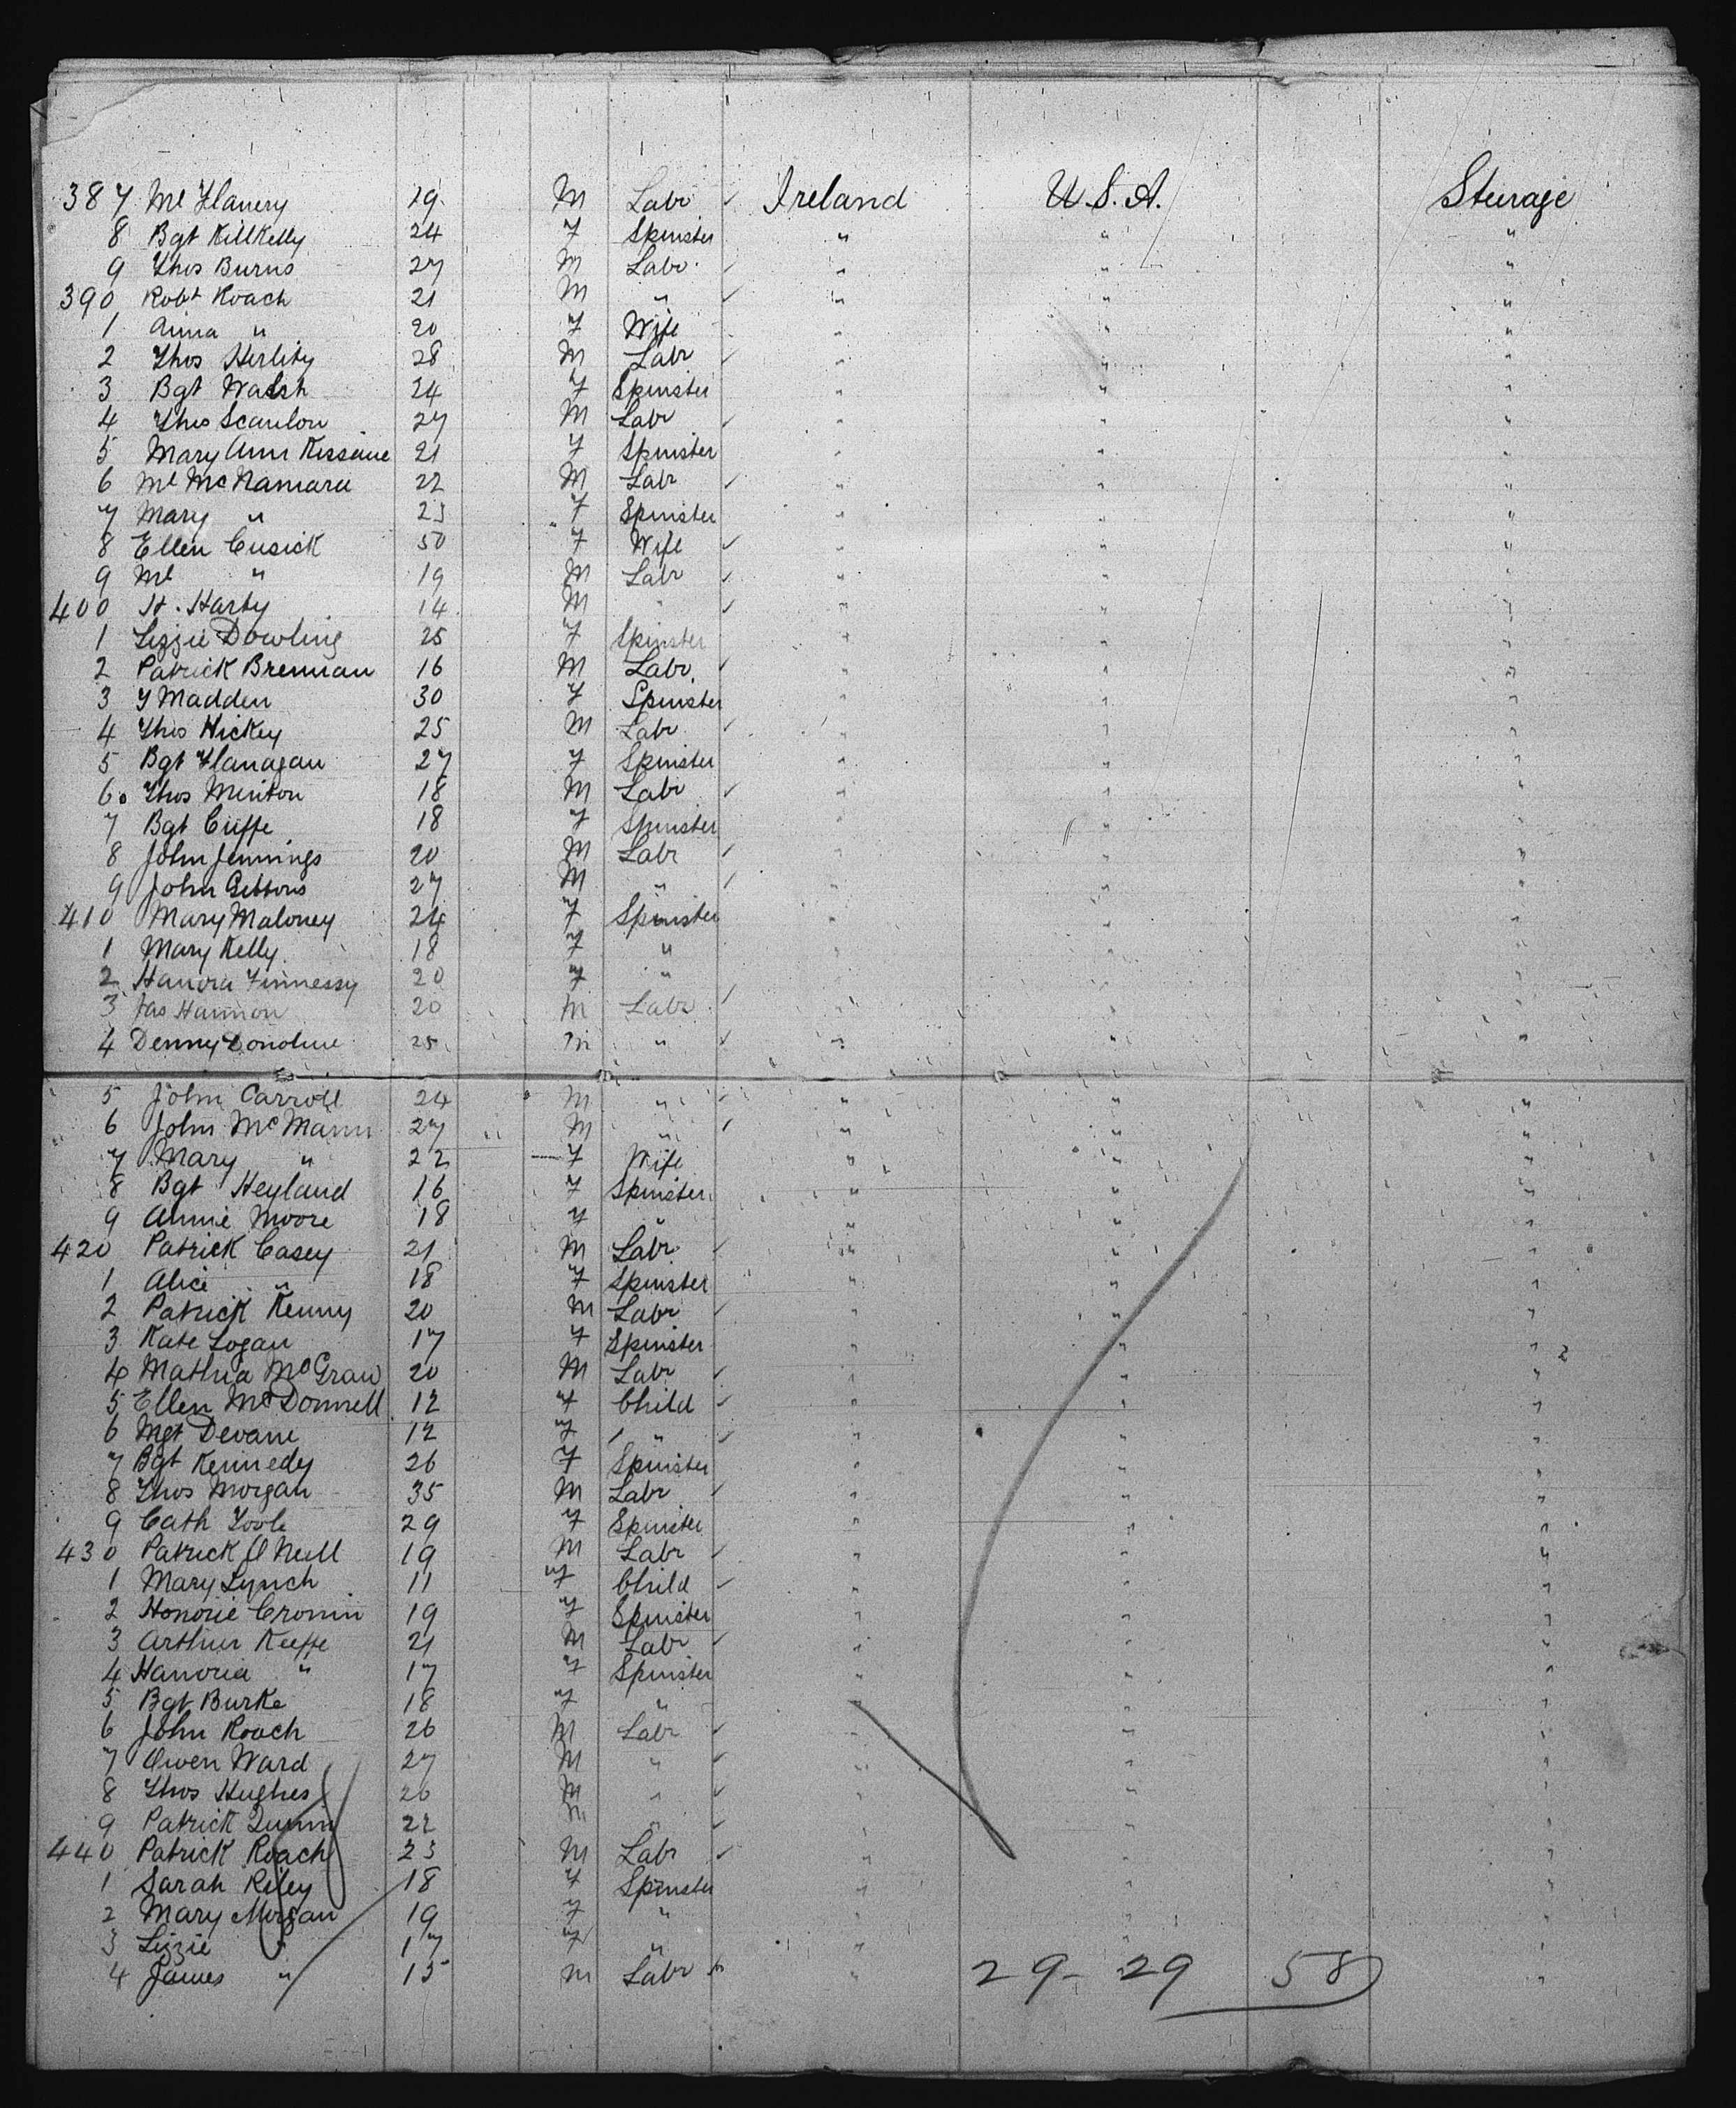 387 Ml Flanery 19 M Labr ✓ Ireland U.S.A. Steerage
8 Bgt Killkelly 24 F Spinster " " "
9 Thos Burns 27 M Labr ✓ " " "
390 Robt Roach 21 M " ✓ " " "
1 Anna " 20 F Wife " " "
2 Thos Herlihy 28 M Labr ✓ " " "
3 Bgt Walsh 24 F Spinster " " "
4 Thos Scanlon 27 M Labr ✓ " " "
5 Mary Ann Kissane 21 F Spinster " " "
6 Ml McNamara 22 M Labr ✓ " " "
7 Mary " 23 F Spinster " " "
8 Ellen Cusick 50 F Wife ✓ " " "
9 Ml " 19 M Labr ✓ " " "
400 H. Harty 14 M " ✓ " " "
1 Lizzie Dowling 25 F Spinster " " "
2 Patrick Brennan 16 M Labr ✓ " " "
3 T Madden 30 F Spinster " " "
4 Thos Hickey 25 M Labr ✓ " " "
5 Bgt Flanagan 27 F Spinster " " "
6 Thos Minton 18 M Labr ✓ " " "
7 Bgt Cuffe 18 F Spinster " " "
8 John Jennings 20 M Labr ✓ " " "
9 John Gibbons 27 M " ✓ " " "
410 Mary Maloney 24 F Spinster " " "
1 Mary Kelly 18 F " " " "
2 Hanora Finnessy 20 F " " " "
3 Jas Hannon 20 M Labr ✓ " " "
4 Denny Donohue 25 M " ✓ " " "
5 John Carroll 24 M " ✓ " " "
6 John McMann 27 M " ✓ " " "
7 Mary " 22 F Wife " " "
8 Bgt Heyland 16 F Spinster " " "
9 Annie Moore 18 F " " " "
420 Patrick Casey 21 M Labr ✓ " " "
1 Alice " 18 F Spinster " " "
2 Patrick Kenny 20 M Labr ✓ " " "
3 Kate Logan 17 F Spinster " " "
4 Mathia McGraw 20 M Labr ✓ " " "
5 Ellen McDonnell 12 F Child ✓ " " "
6 Mgt Devane 12 F " ✓ " " "
7 Bgt Kennedy 26 F Spinster " " "
8 Thos Morgan 35 M Labr ✓ " " "
9 Cath Toole 29 F Spinster " " "
430 Patrick O Neill 19 M Labr ✓ " " "
1 Mary Lynch 11 F Child ✓ " " "
2 Honorie Cronin 19 F Spinster " " "
3 Arthur Keeffe 21 M Labr ✓ " " "
4 Hanoria " 17 F Spinster " " "
5 Bgt Burke 18 F " " " "
6 John Roach 26 M Labr ✓ " " "
7 Owen Ward 27 M " ✓ " " "
8 Thos Hughes 26 M " ✓ " " "
9 Patrick Quinn 22 M " ✓ " " "
440 Patrick Roach 23 M Labr ✓ " " "
1 Sarah Riley 18 F Spinster " " "
2 Mary Morgan 19 F " " " "
3 Lizzie " 17 F " " " "
4 James " 15 M Labr " "
29 - 29 58